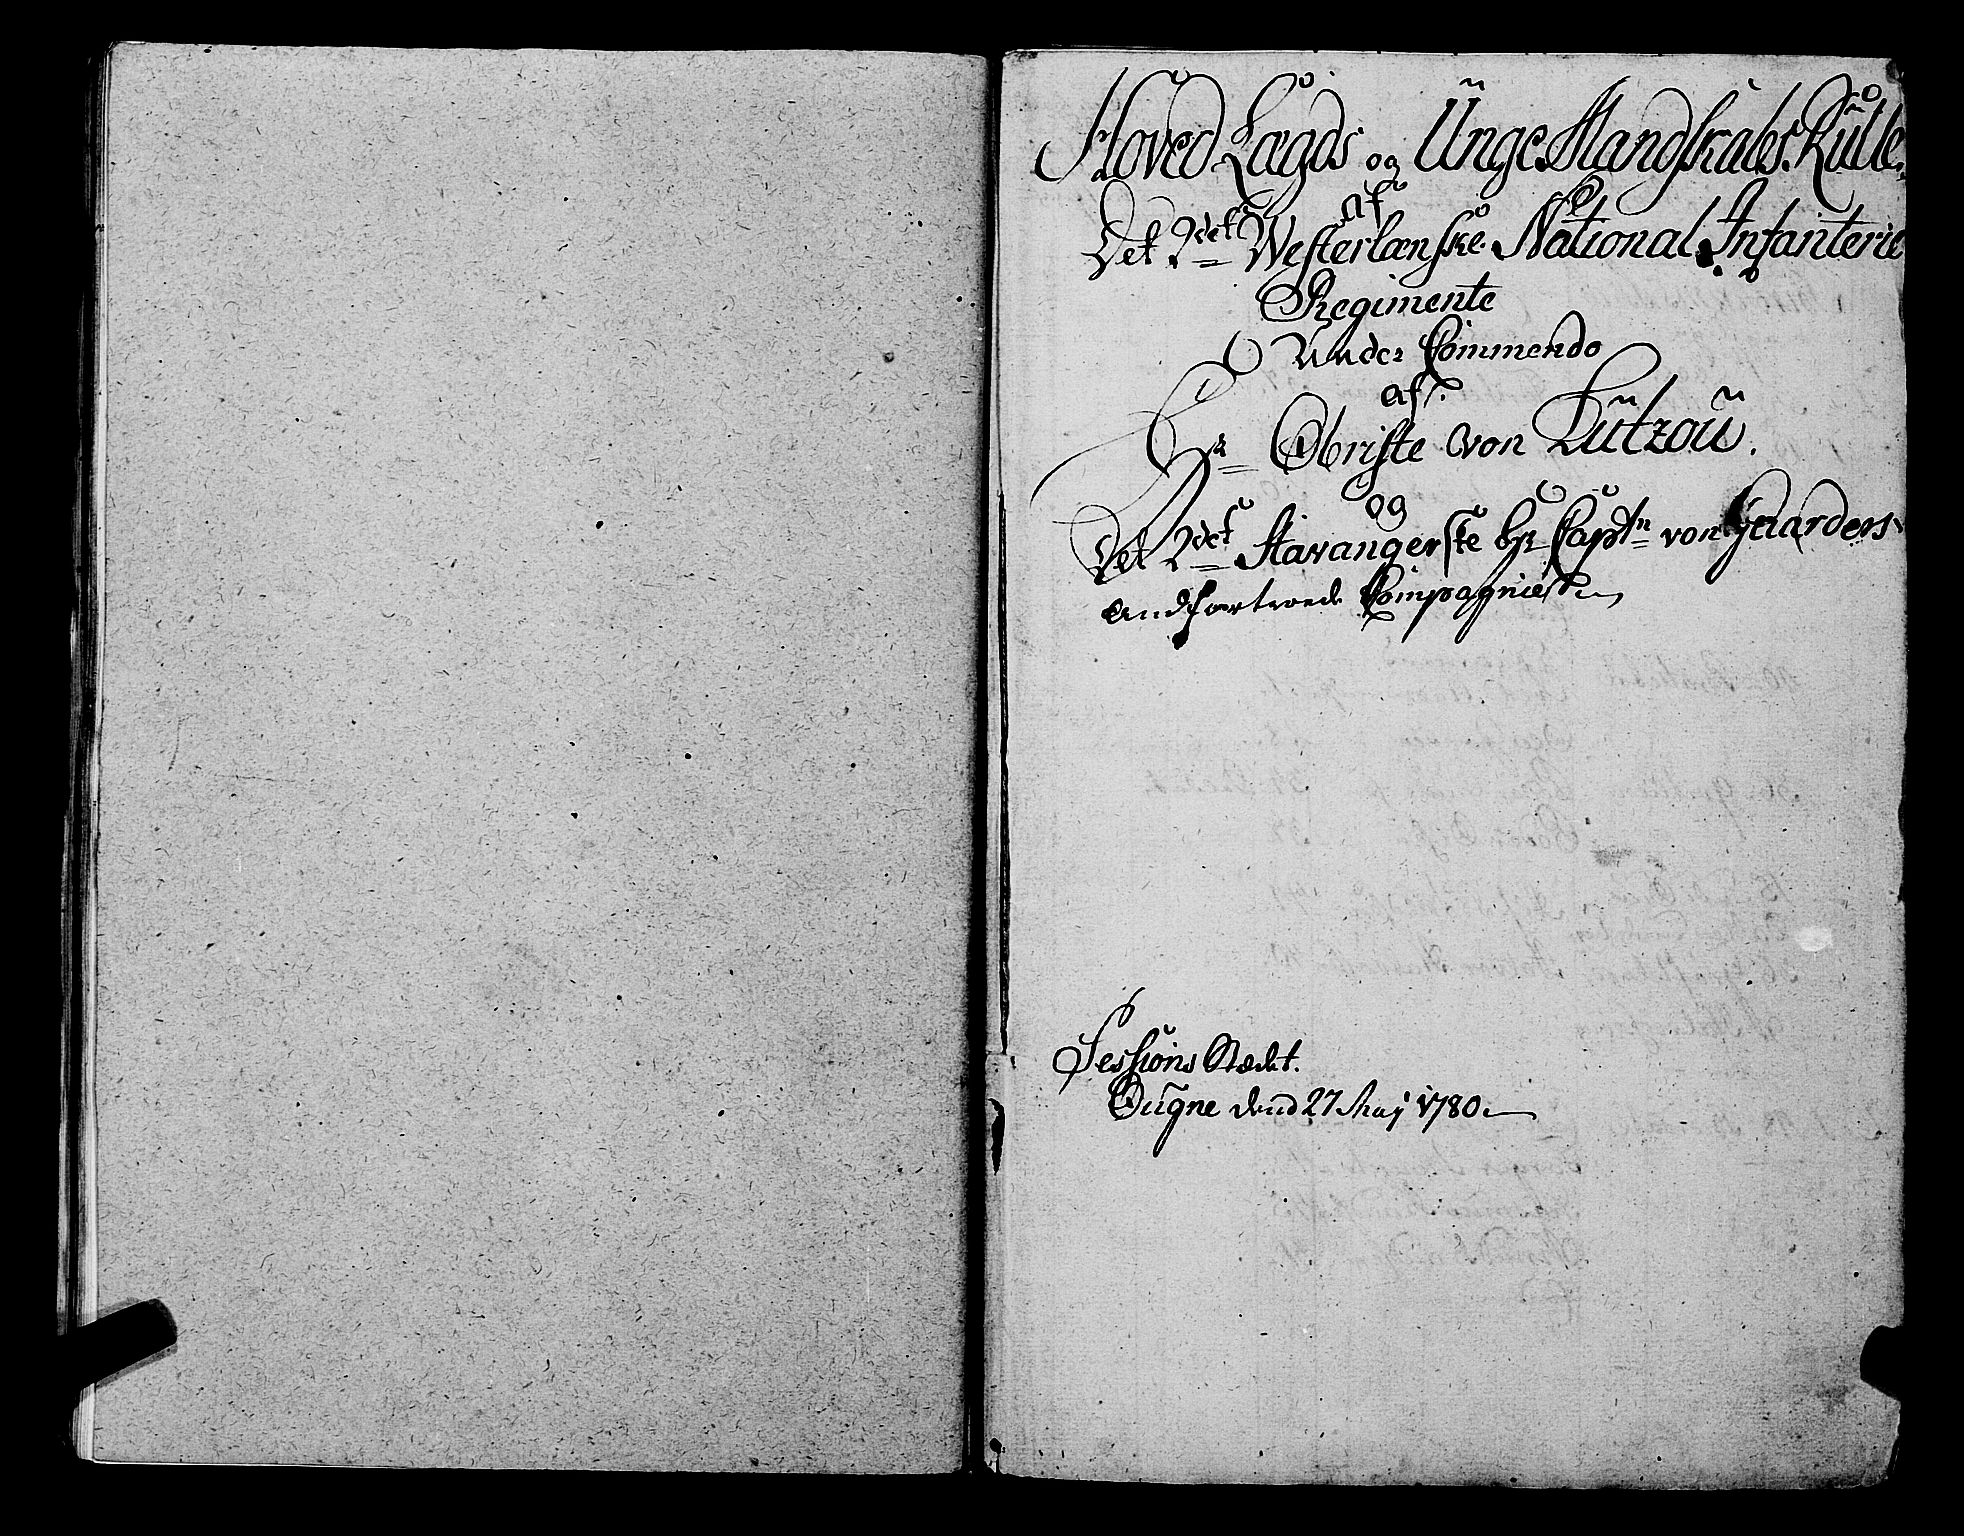 Hoved Lægds og Unge Mandskabs Rulle
af
Det 2det Westerlenske National Infanterie
Regimente
Under Commendo
af
Hr Obriste von Lützou.
og
Det 2det Stavangerske Hr Captn von Gaarders
andfortroede Compagnie
Sessions Stædet.
Øugne dend 27 Maj 1780